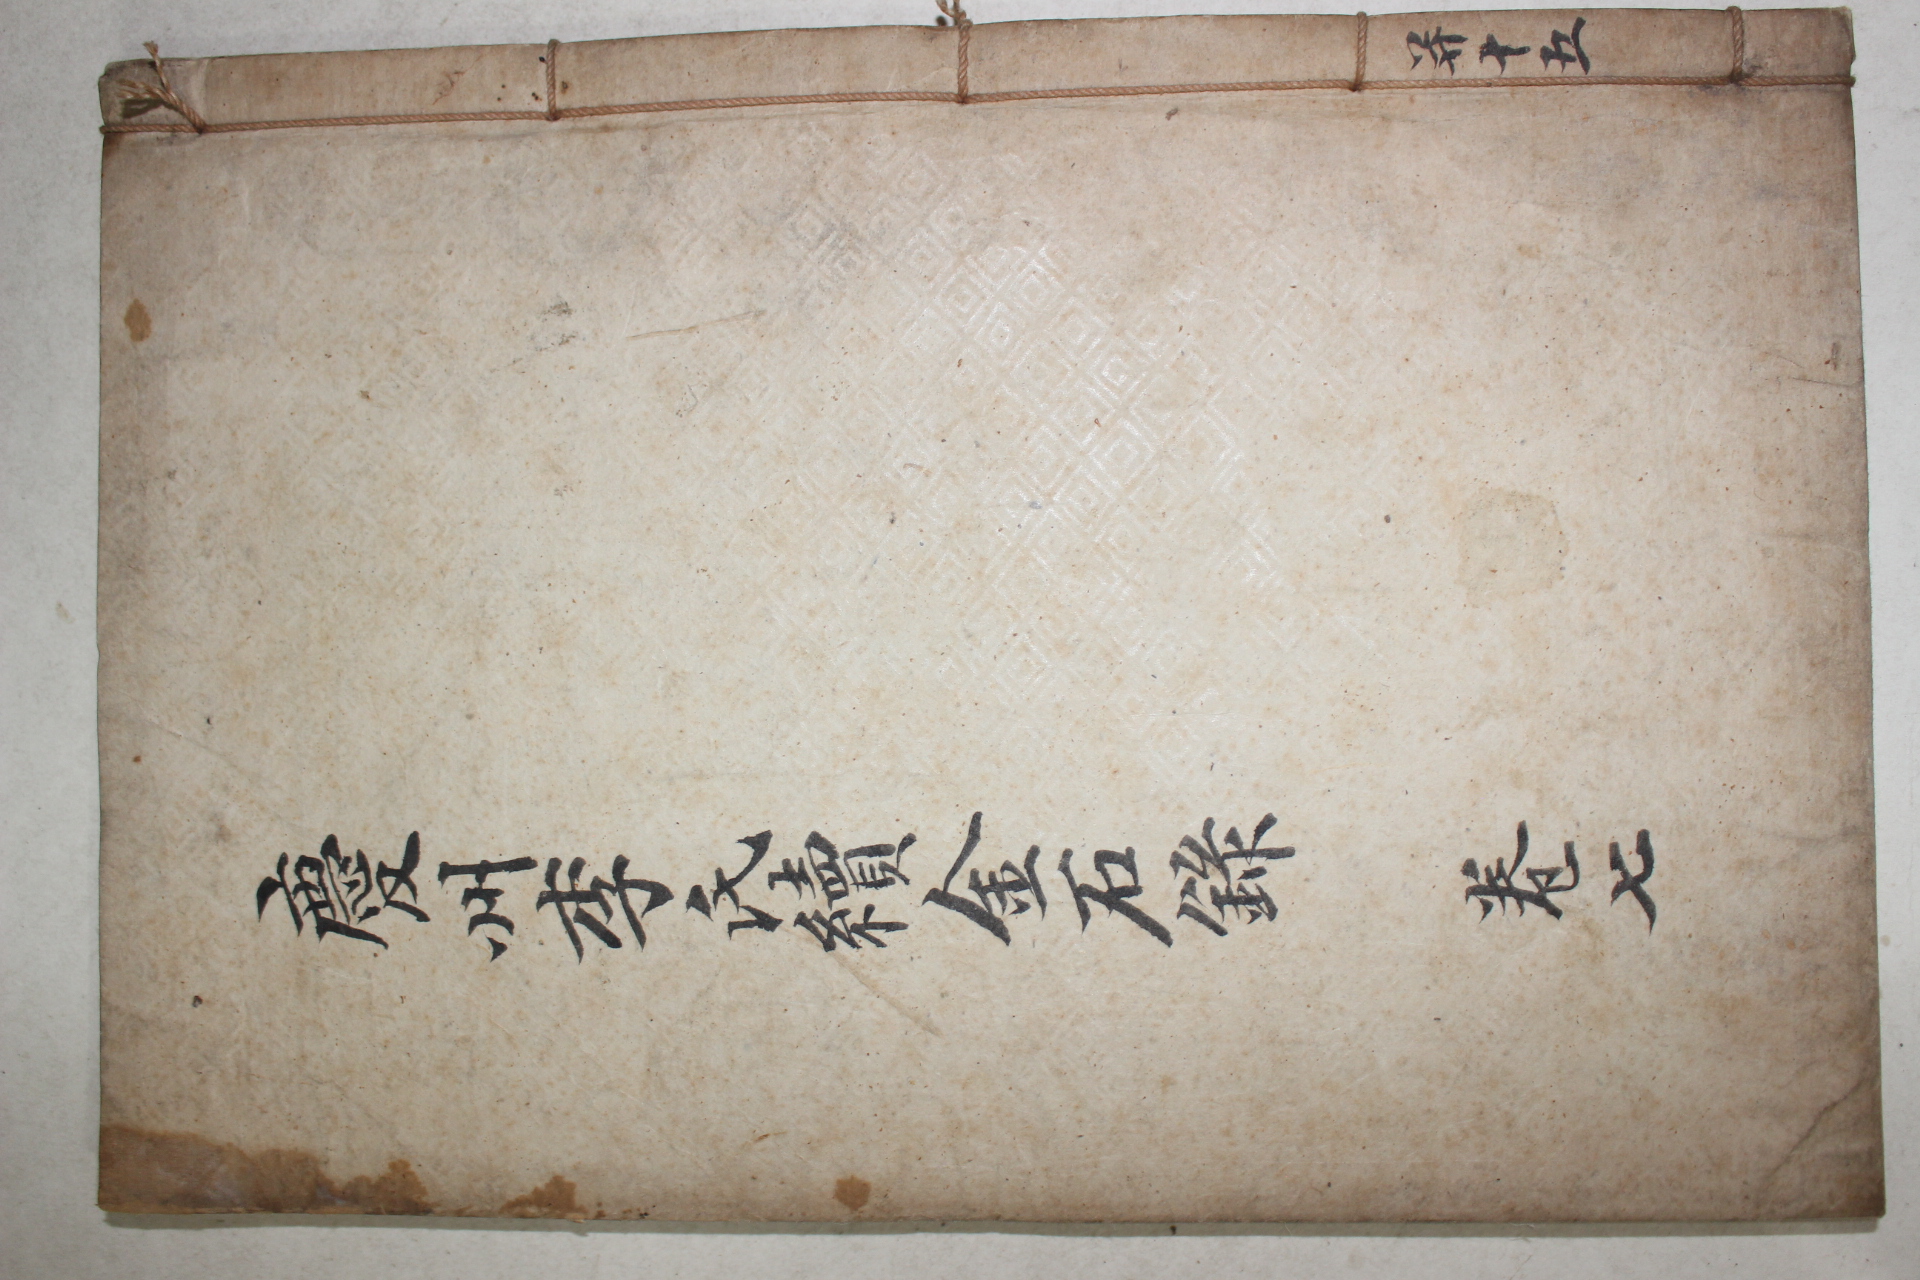 慶州李氏續金石錄 卷七
幷十五